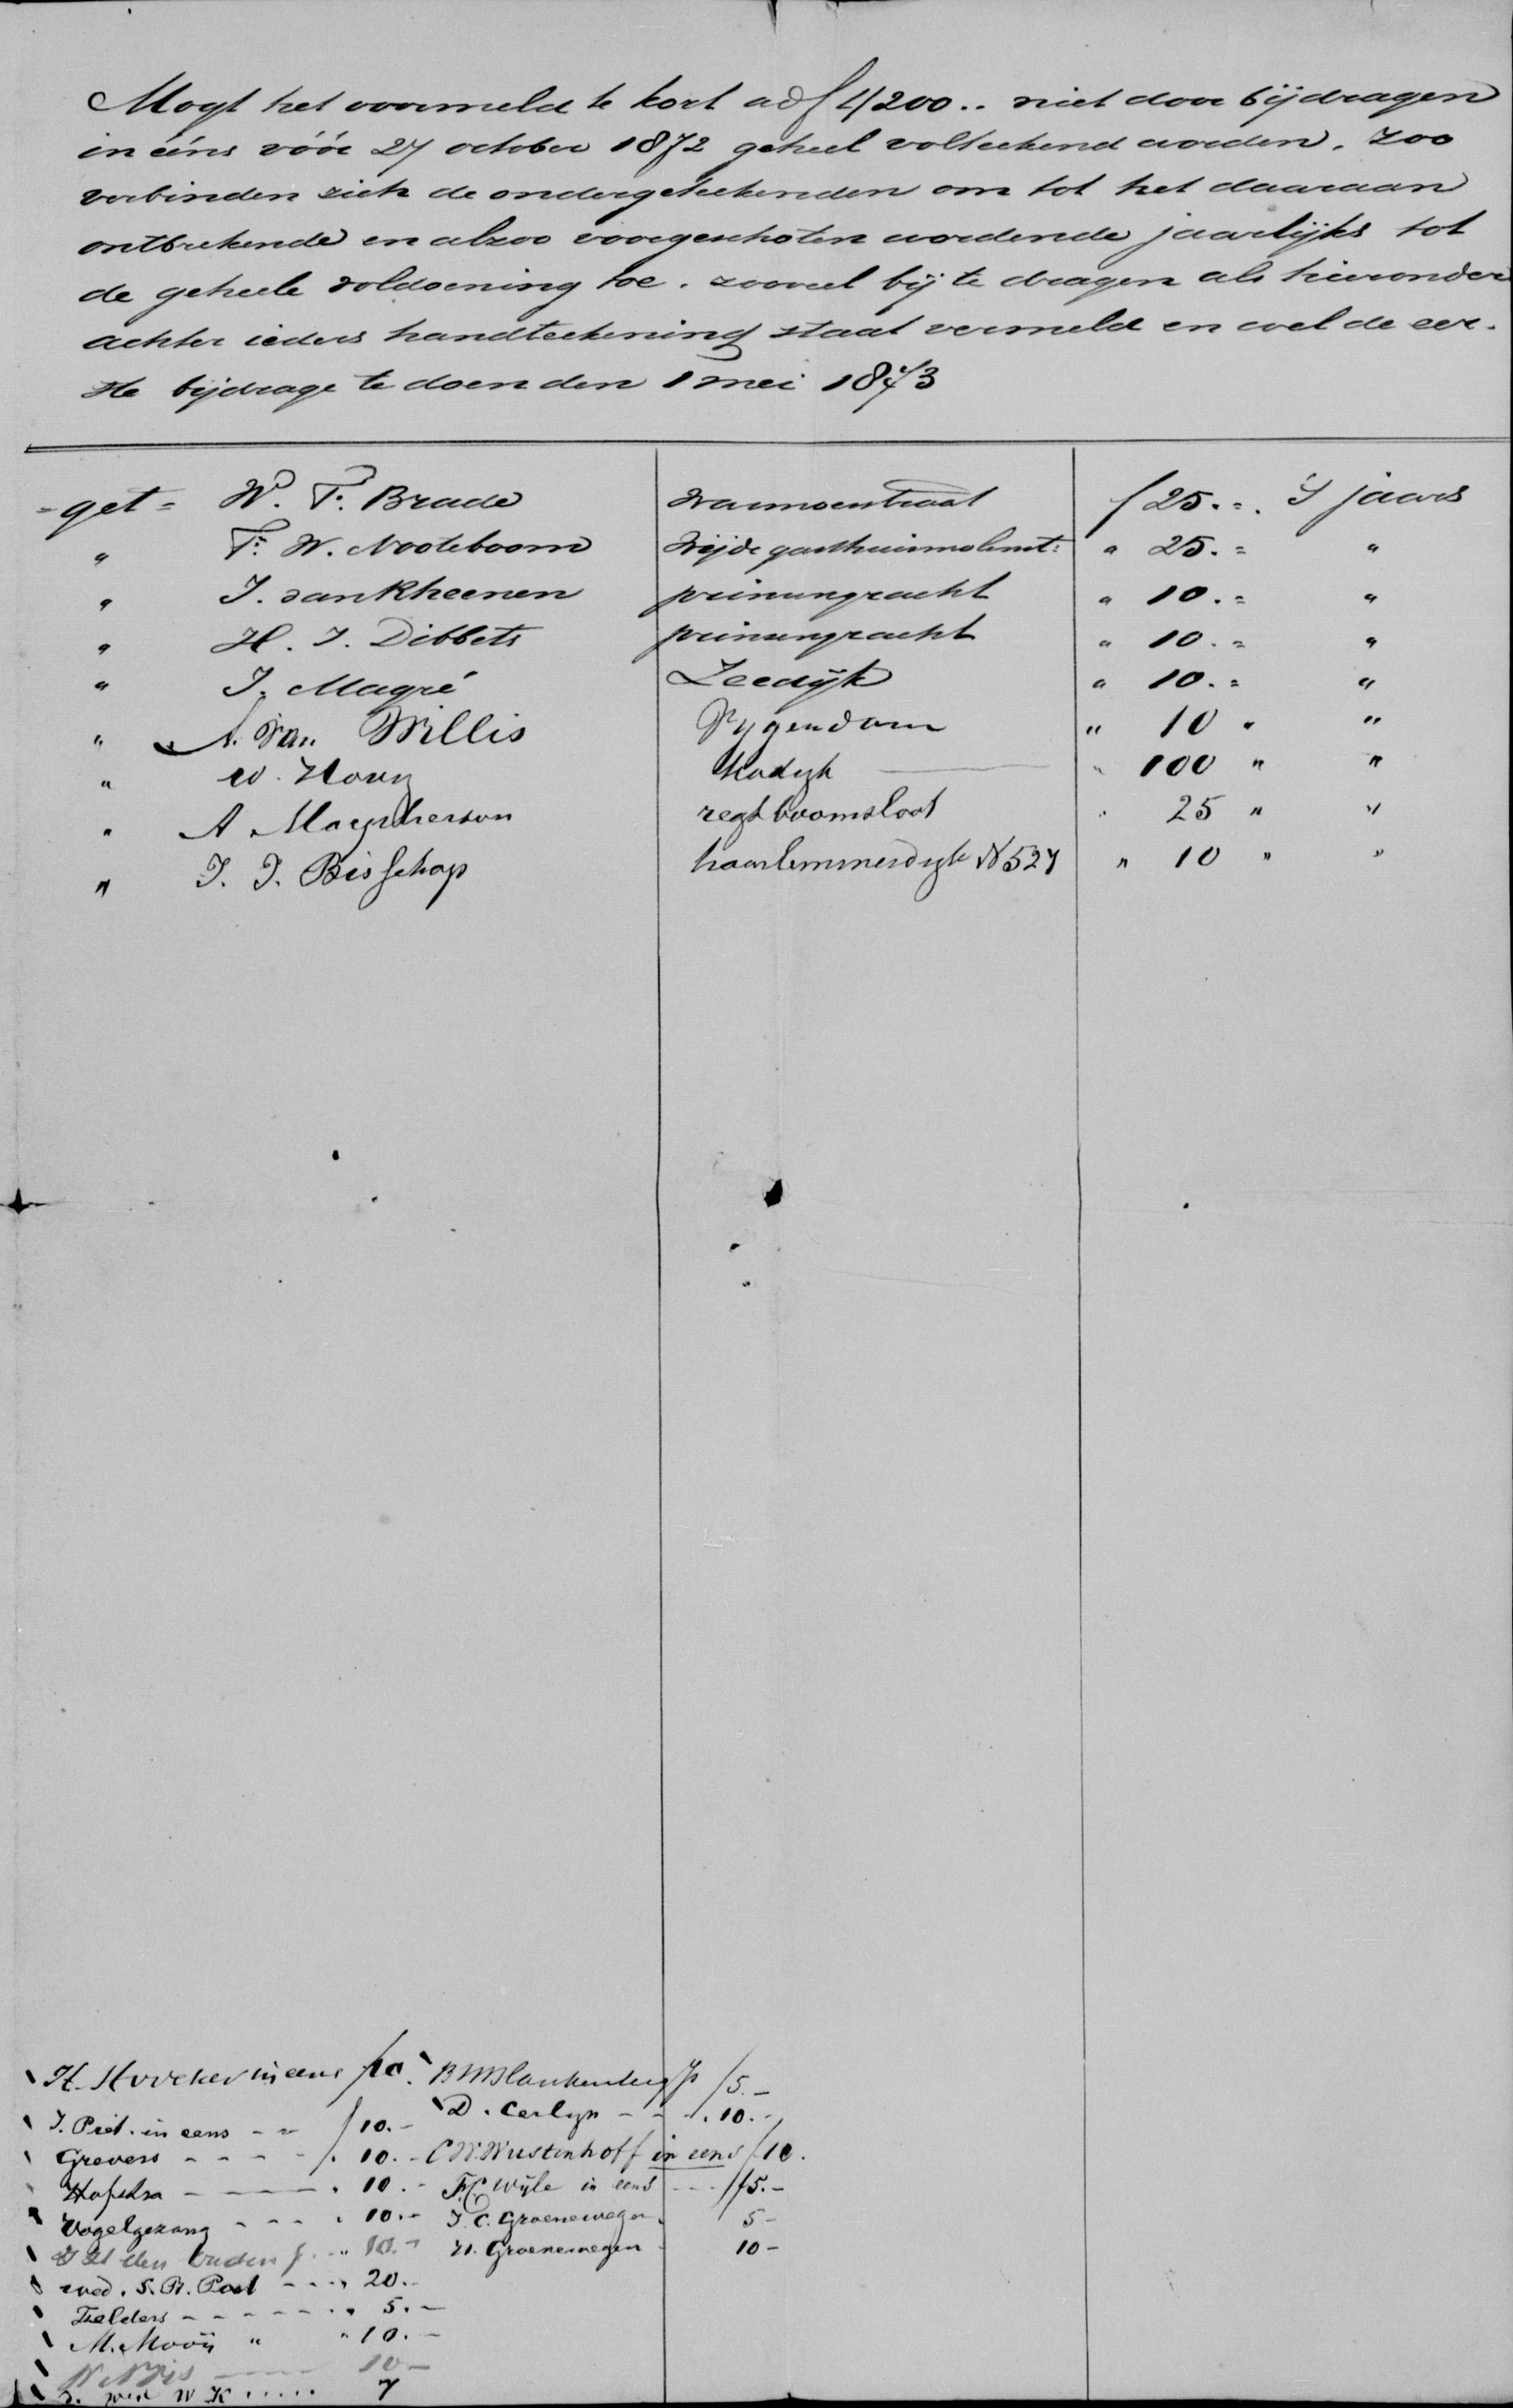 Mogt het voormeld te kort ad f 4200.. niet door bijdragen
in ééns vóór 27 october 1872 geheel volteekend worden, zoo
verbinden zich de ondergeteekenden om tot het daaraan
ontbrekende en alzoo voorgeschoten wordende jaarlijks tot
de geheele voldoening toe, zooveel bij te dragen als hieronder
achter ieders handteekening staat vermeld en wel de eer-
ste bijdrage te doen den 1 mei 1873
= get = W. F. Brade Warmoestraat f 25. =. 's jaars
" F. W. Nooteboom Wijde gasthuismolenst: " 25. = "
" J. van Rheenen prinsengracht " 10. = "
" H. J. Dibbets prinsengracht " 10. = "
" J. Magré Zeedijk " 10. = "
" A. van Willis Vygendam " 10 " "
" W. Hovy Kadyk " 100 " "
" A Macpherson regt boomsloot " 25 " "
" J. J. Bisschop haarlemmerdyk N 527 " 10 " "
H. Hoveker in eens f 10. f 5.-
J. Piet. in eens - - f 10.- D. Carlyn - - . 10.-
Grevers - - - - . 10.- C W. Wustenhoff in eens f 10.
Hofstra - - - . 10.- F.C. Wijle in eens - - - f 5.-
Vogelgezang - - - . 10.- J. C. Groenewegen 5-
den Ouden - - " 10.- H. Groenewegen 10-
wed. S. R. Post - - - " 20.-
Tselders - - - - - . " 5.-
M. Mooij " " 10.-
W Nijs 10-
W K ..... 7